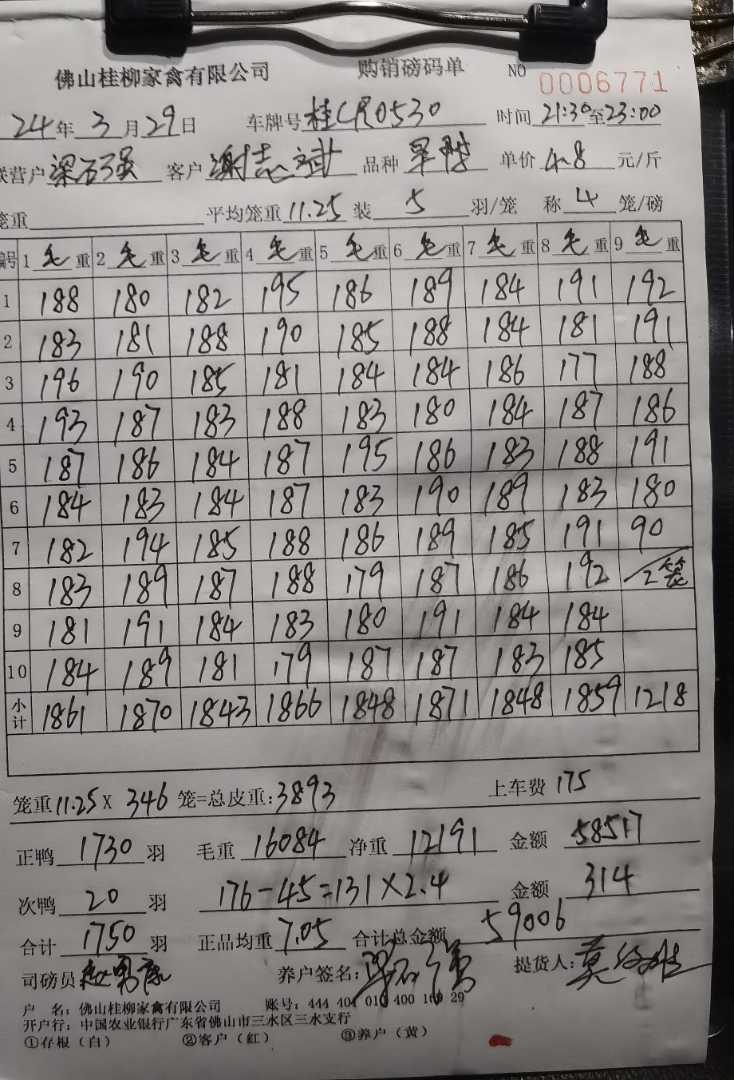 佛山桂柳家禽有限公司 购销磅码单 NO 0006771
24年3月29日 车牌号桂CR0530 时间21:30至23:00
联营户梁石强 客户谢志斌 品种 单价4.8元/斤
笼重 平均笼重11.25装5羽/笼 称4笼/磅
编号 1毛重 2毛重 3毛重 4毛重 5毛重 6毛重 7毛重 8毛重 9毛重
1 188 180 182 195 186 189 184 191 192
2 183 181 188 190 185 188 184 181 191
3 196 190 185 181 184 184 186 177 188
4 193 187 183 188 183 180 184 187 186
5 187 186 184 187 195 186 183 188 191
6 184 183 184 187 183 190 189 183 180
7 182 194 185 188 186 189 185 191 90
8 183 189 187 188 179 187 186 192 2笼
9 181 191 184 183 180 191 184 184
10 184 189 181 179 187 187 183 185
小计 1861 1870 1843 1866 1848 1871 1848 1859 1218
笼重11.25X346笼=总皮重:3893 上车费175
正鸭1730羽 毛重16084净重12191金额58517
次鸭20羽 176-45=131×2.4 金额314
合计1750羽 正品均重7.05合计总金额59006
司磅员 养户签名:梁石强 提货人:
户 名:佛山桂柳家禽有限公司 账号:444 404 010 400 169 29
开户行:中国农业银行广东省佛山市三水区三水支行
①存根(白) ②客户(红) ③养户(黄)